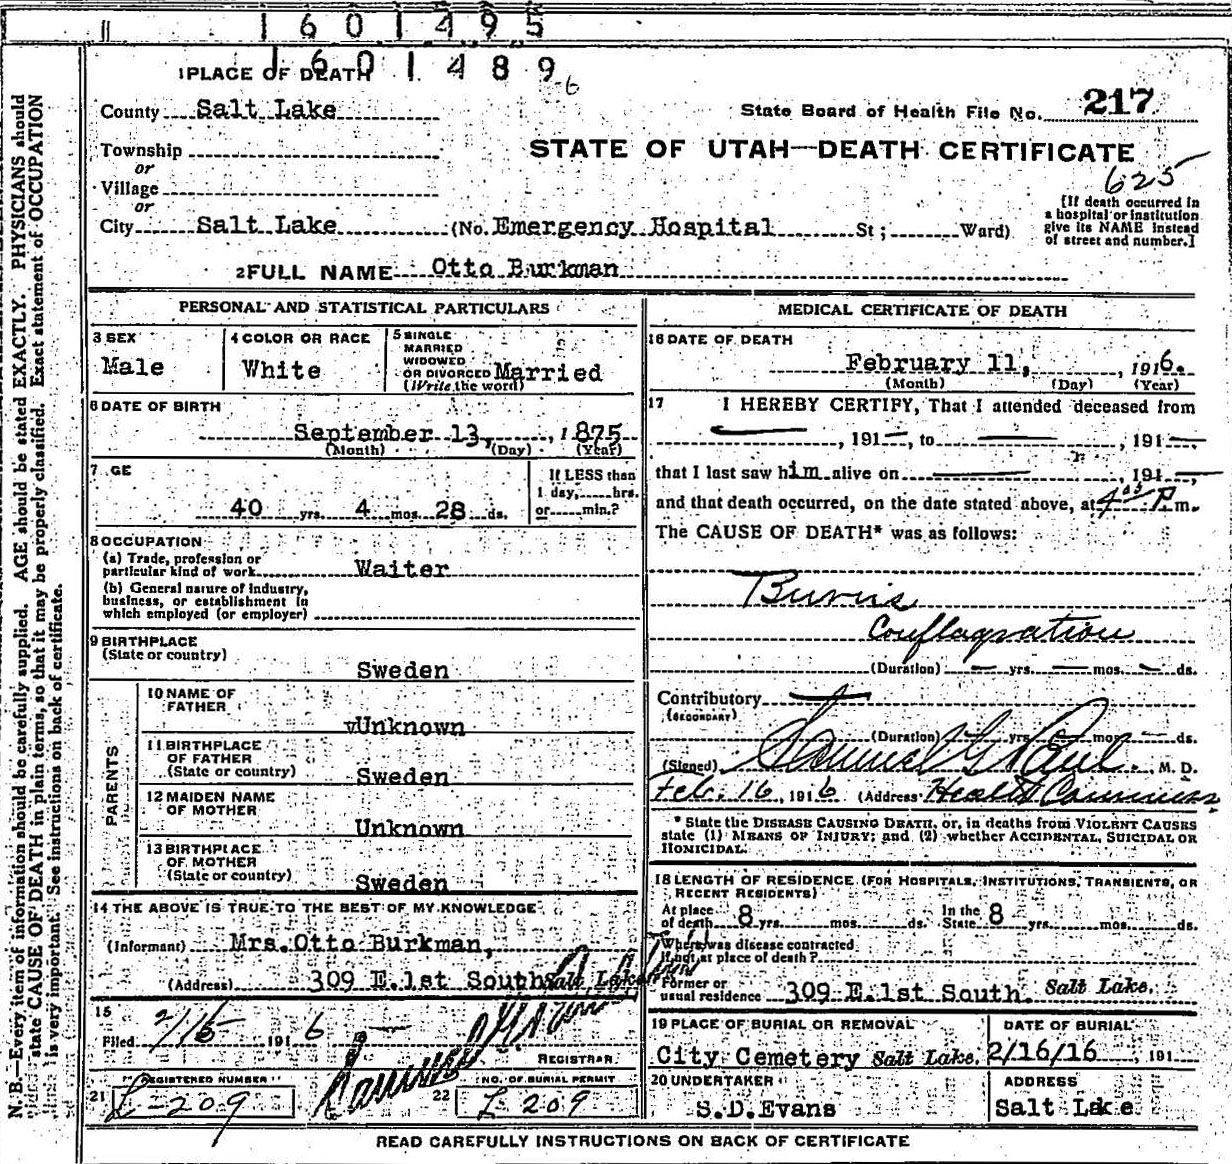 1601495
1601489
-6
1 PLACE OF DEATH
County Salt Lake
State Board of Health File No. 217
Township
or
Village
or
City Salt Lake (No. Emergency Hospital St; Ward)
STATE OF UTAH—DEATH CERTIFICATE
625
[If death occurred in
a hospital or institution
give its NAME instead
of street and number.]
2 FULL NAME Otto Burkman
PERSONAL AND STATISTICAL PARTICULARS
3 SEX
Male
4 COLOR OR RACE
White
5 SINGLE
MARRIED
WIDOWED
OR DIVORCED Married
(Write the word)
6 DATE OF BIRTH
September 13, , 1875
(Month) (Day) (Year)
7 GE
40 yrs. 4 mos. 28 ds.
If LESS than
1 day,......hrs.
or......min.?
8 OCCUPATION
(a) Trade, profession or
particular kind of work Waiter
(b) General nature of industry,
business, or establishment in
which employed (or employer)
9 BIRTHPLACE
(State or country)
Sweden
PARENTS
10 NAME OF
FATHER
vUnknown
11 BIRTHPLACE
OF FATHER
(State or country) Sweden
12 MAIDEN NAME
OF MOTHER
Unknown
13 BIRTHPLACE
OF MOTHER
(State or country) Sweden
14 THE ABOVE IS TRUE TO THE BEST OF MY KNOWLEDGE
(Informant) Mrs. Otto Burkman,
(Address) 309 E.1st South Salt Lake
15
Filed 2/15 1916
REGISTRAR
21 REGISTERED NUMBER
L-209
22 NO. OF BURIAL PERMIT
L 209
MEDICAL CERTIFICATE OF DEATH
16 DATE OF DEATH
February 11, , 1916.
(Month) (Day) (Year)
17 I HEREBY CERTIFY, That I attended deceased from
, 191—, to — , 191—
that I last saw him alive on — , 191—,
and that death occurred, on the date stated above, at 4 05 P.m.
The CAUSE OF DEATH* was as follows:
Burns
Conflagration
(Duration) — yrs. — mos. — ds.
Contributory —
(SECONDARY)
(Duration) — yrs. — mos. — ds.
(Signed) Samuel G Paul M. D.
Feb. 16, 1916 (Address) Health Commissr
* State the DISEASE CAUSING DEATH, or, in deaths from VIOLENT CAUSES
state (1) MEANS OF INJURY; and (2) whether ACCIDENTAL, SUICIDAL OR
HOMICIDAL.
18 LENGTH OF RESIDENCE (FOR HOSPITALS, INSTITUTIONS, TRANSIENTS, OR
RECENT RESIDENTS)
At place of death 8 yrs. mos. ds. In the State 8 yrs. mos. ds.
Where was disease contracted
if not at place of death?
Former or
usual residence 309 E.1st South. Salt Lake.
19 PLACE OF BURIAL OR REMOVAL
City Cemetery Salt Lake.
DATE OF BURIAL
2/16/16 , 191
20 UNDERTAKER
S.D.Evans
ADDRESS
Salt Lake
READ CAREFULLY INSTRUCTIONS ON BACK OF CERTIFICATE
N. B.—Every item of information should be carefully supplied. AGE should be stated EXACTLY. PHYSICIANS should
state CAUSE OF DEATH in plain terms, so that it may be properly classified. Exact statement of OCCUPATION
is very important. See instructions on back of certificate.